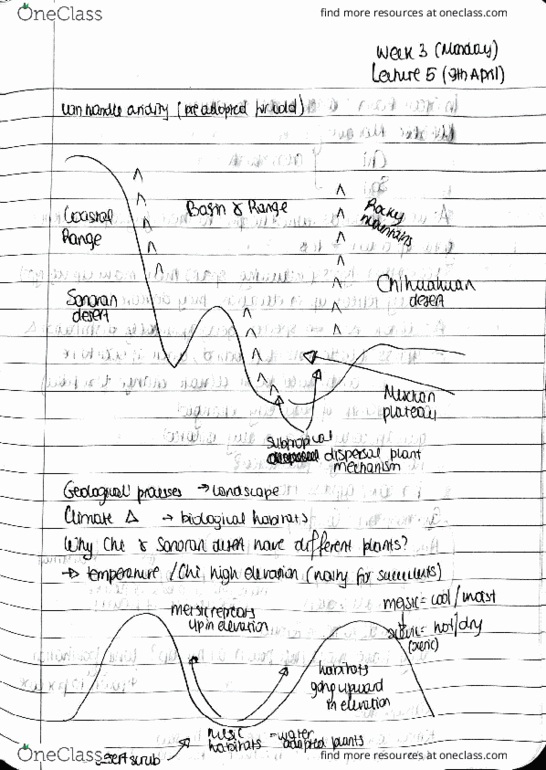 OneClass
find more resources at oneclass.com
Week 3 (Monday)
Lecture 5 (9th April)
can handle aridity (pre adopted for cold)
Coastal Range
Basin & Range
Rocky mountains
Sonoran desert
Chihuahuan desert
Mexican plateau
Subtropical
dispersal plant
mechanism
Geological processes → landscape
Climate Δ → biological habitats
Why Chi & Sonoran desert have different plants?
→ temperature / Chi high elevation (nasty for succulents)
mersic retreats
up in elevation
mersic = cool/moist
= hot/dry
(xeric)
habitats
going upward
in elevation
mesic
habitats = water
adopted plants
desert scrub
OneClass
find more resources at oneclass.com